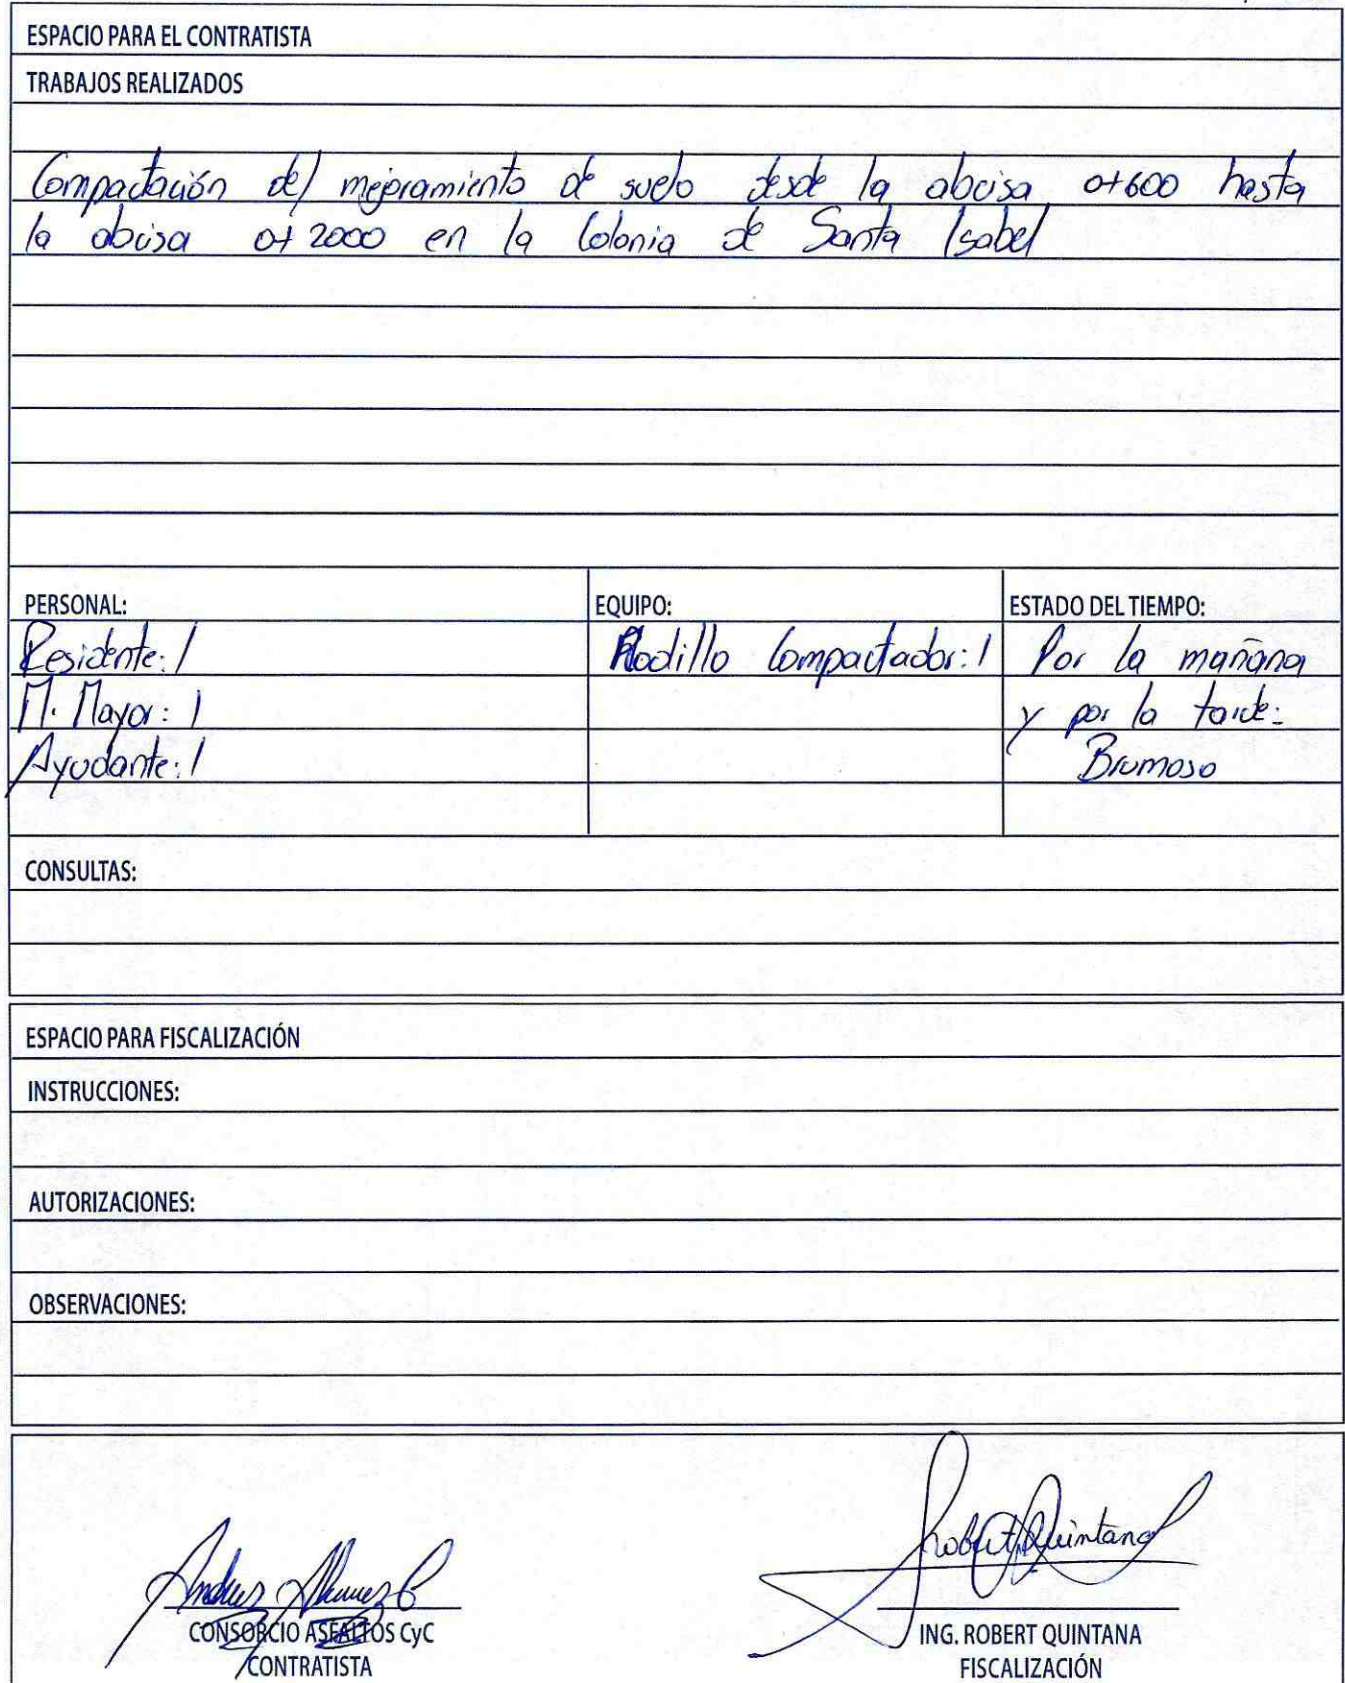 ESPACIO PARA EL CONTRATISTA
TRABAJOS REALIZADOS
Compactación del mejoramiento de suelo desde la abcisa 0+600 hasta
la abcisa 0+2000 en la Colonia de Santa Isabel
PERSONAL:
Residente: 1
M. Mayor: 1
Ayudante: 1
EQUIPO:
Rodillo Compactador: 1
ESTADO DEL TIEMPO:
Por la mañana
y por la tarde:
Brumoso
CONSULTAS:
ESPACIO PARA FISCALIZACIÓN
INSTRUCCIONES:
AUTORIZACIONES:
OBSERVACIONES:
Robert Quintana
CONSORCIO ASFALTOS CyC
CONTRATISTA
ING. ROBERT QUINTANA
FISCALIZACIÓN